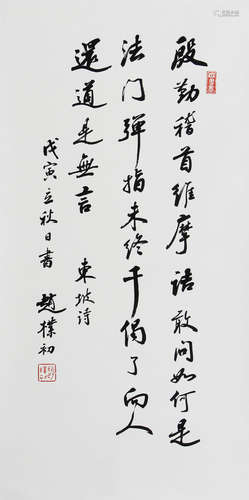 殷勤稽首維摩诘敢问如何是
法门弹指未终千偈了向人
還道是無言
東坡诗
戊寅立秋日書
趙樸初